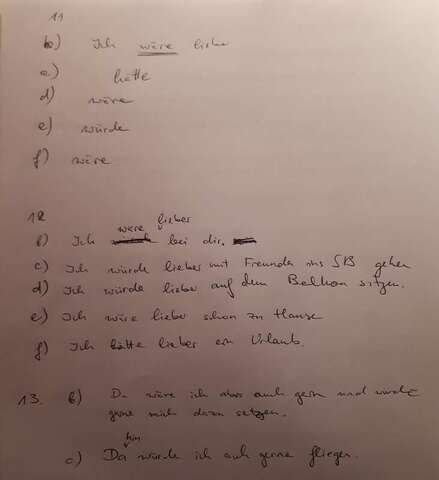 11
b) Ich wäre lieber
c) hatte
d) wäre
e) würde
f) wäre
12
wäre lieber
b) Ich bei dir.
c) Ich würde lieber mit Freunden ins SB gehen
d) Ich würde lieber auf dem Balkon sitzen.
e) Ich wäre lieber schon zu Hause
f) Ich hätte lieber ein Urlaub.
13. b) Da wäre ich aber auch gern und würde
gerne mich dazu setzen.
hin
c) Da würde ich auch gerne fliegen.